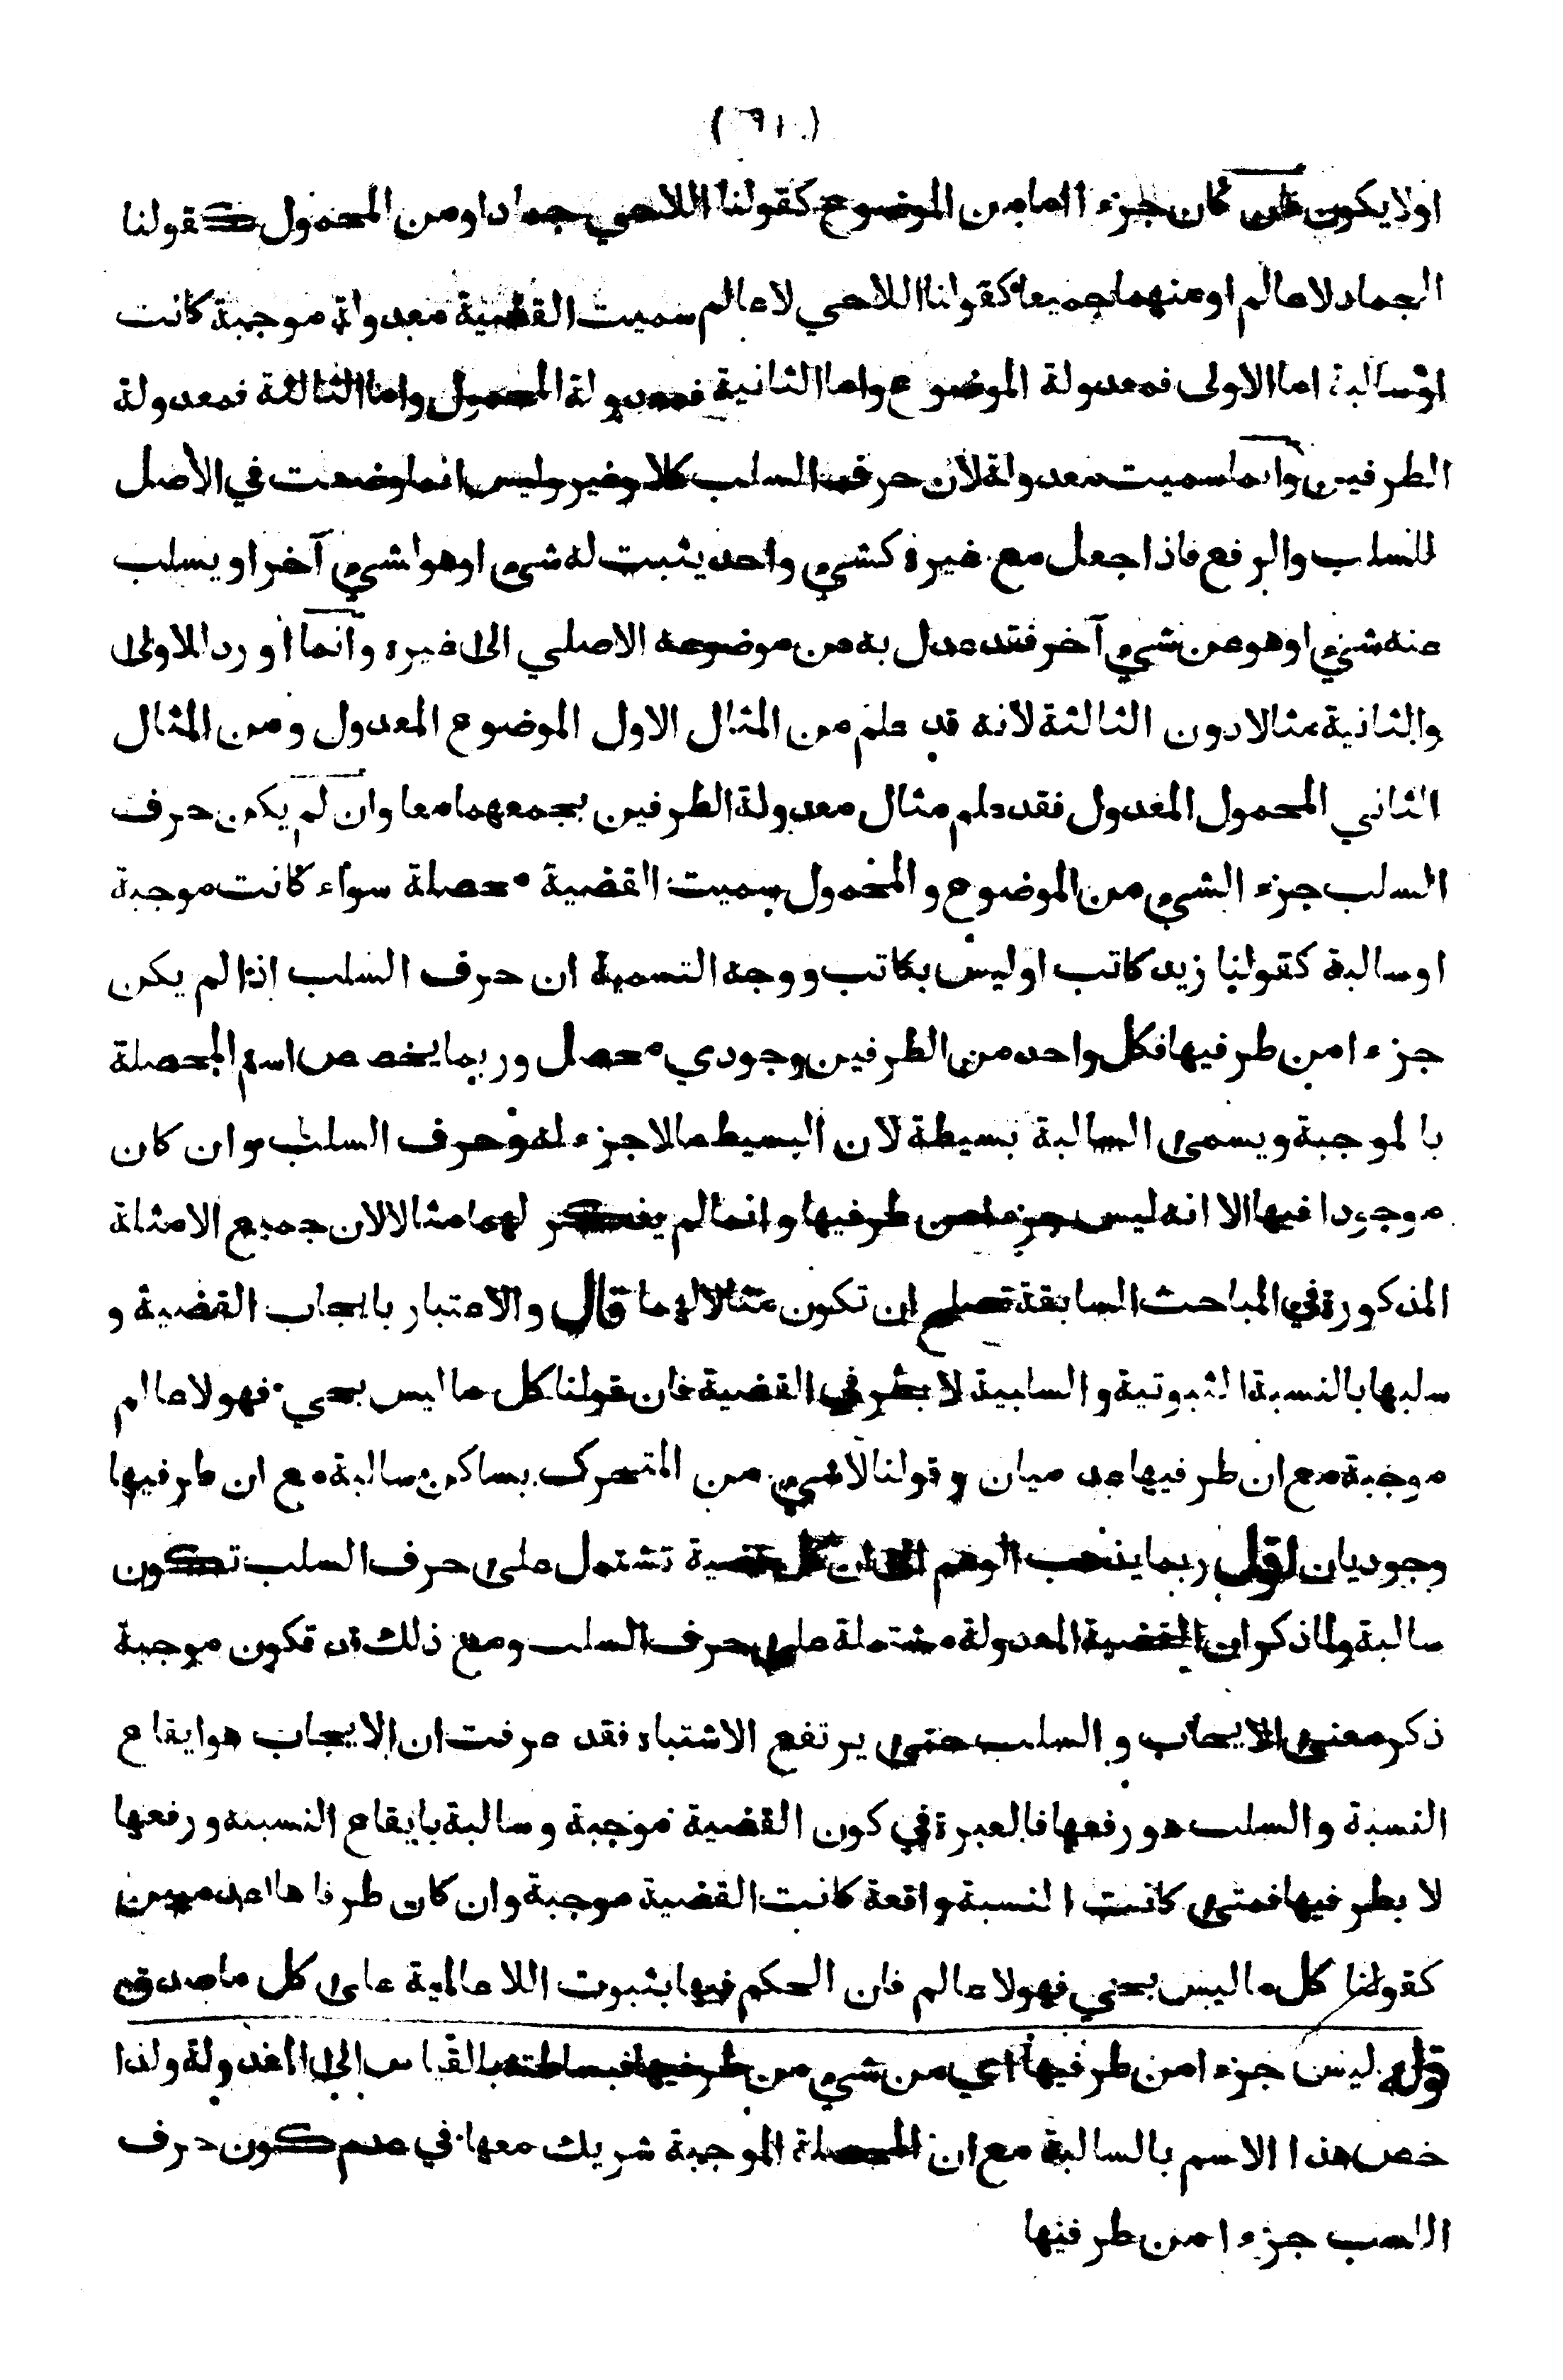 اولا يكون فان كان جزء ا اما من الموضوع كقولنا اللاحي جماد او من المحمول كقولنا
الجماد لا عالم او منهما جميعا كقولنا اللاحي لا عالم سميت القضية معدولة موجبة كانت
او سالبة اما الاولى فمعدولة الموضوع واما الثانية فمعدولة المحمول واما الثالثة فمعدولة
الطرفين وانما سميت معدولة لأن حرف السلب كلا وغير وليس انما وضعت في الأصل
للسلب والرفع فاذا جعل مع غيره كشيء واحد يثبت له شيء او هو لشيء آخر او يسلب
عنه شيء او هو عن شيء آخر فقد عدل به عن موضوعه الاصلي الى غيره وانما اورد للاولى
والثانية مثالا دون الثالثة لأنه قد علم من المثال الاول الموضوع المعدول ومن المثال
الثاني المحمول المعدول فقد علم مثال معدولة الطرفين بجمعهما معا وان لم يكن حرف
السلب جزء الشيء من الموضوع و المحمول سميت القضية محصلة سواء كانت موجبة
او سالبة كقولنا زيد كاتب او ليس بكاتب ووجه التسمية ان حرف السلب اذا لم يكن
جزء ا من طرفيها فكل واحد من الطرفين وجودي محصل وربما يخصص اسم المحصلة
بالموجبة ويسمى السالبة بسيطة لأن البسيط ما لا جزء له وحرف السلب وان كان
موجودا فيها الا انه ليس جزء ا من طرفيها وانما لم يذكر لهما مثالا لان جميع الامثلة
المذكورة في المباحث السابقة تصلح ان تكون مثالا لهما قال والاعتبار بايجاب القضية و
سلبها بالنسبة الثبوتية و السلبية لا بطرفي القضية فان قولنا كل ما ليس بحي فهو لا عالم
موجبة مع ان طرفيها عد ميان وقولنا لا شيء من المتحرك بساكن سالبة مع ان طرفيها
وجوديان اقول ربما يذهب الوهم الى ان كل قضية تشتمل على حرف السلب تكون
سالبة ولما ذكر ان القضية المعدولة مشتملة على حرف السلب ومع ذلك قد تكون موجبة
ذكر معنى الايجاب و السلب حتى يرتفع الاشتباه فقد عرفت ان الايجاب هو ايقاع
النسبة والسلب هو رفعها فالعبرة في كون القضية موجبة وسالبة بايقاع النسبة ورفعها
لا بطرفيها فمتى كانت النسبة واقعة كانت القضية موجبة وان كان طرفاها عدميين
كقولنا كل ما ليس بحي فهو لا عالم فان الحكم فيها بثبوت اللا عالمية على كل ما صدق
قوله ليس جزء ا من طرفيها اي من شيء من طرفيها فبساطته بالقياس الى المعدولة ولذا
خص هذا الاسم بالسالبة مع ان المحصلة الموجبة شريك معها في عدم كون حرف
السلب جزء ا من طرفيها